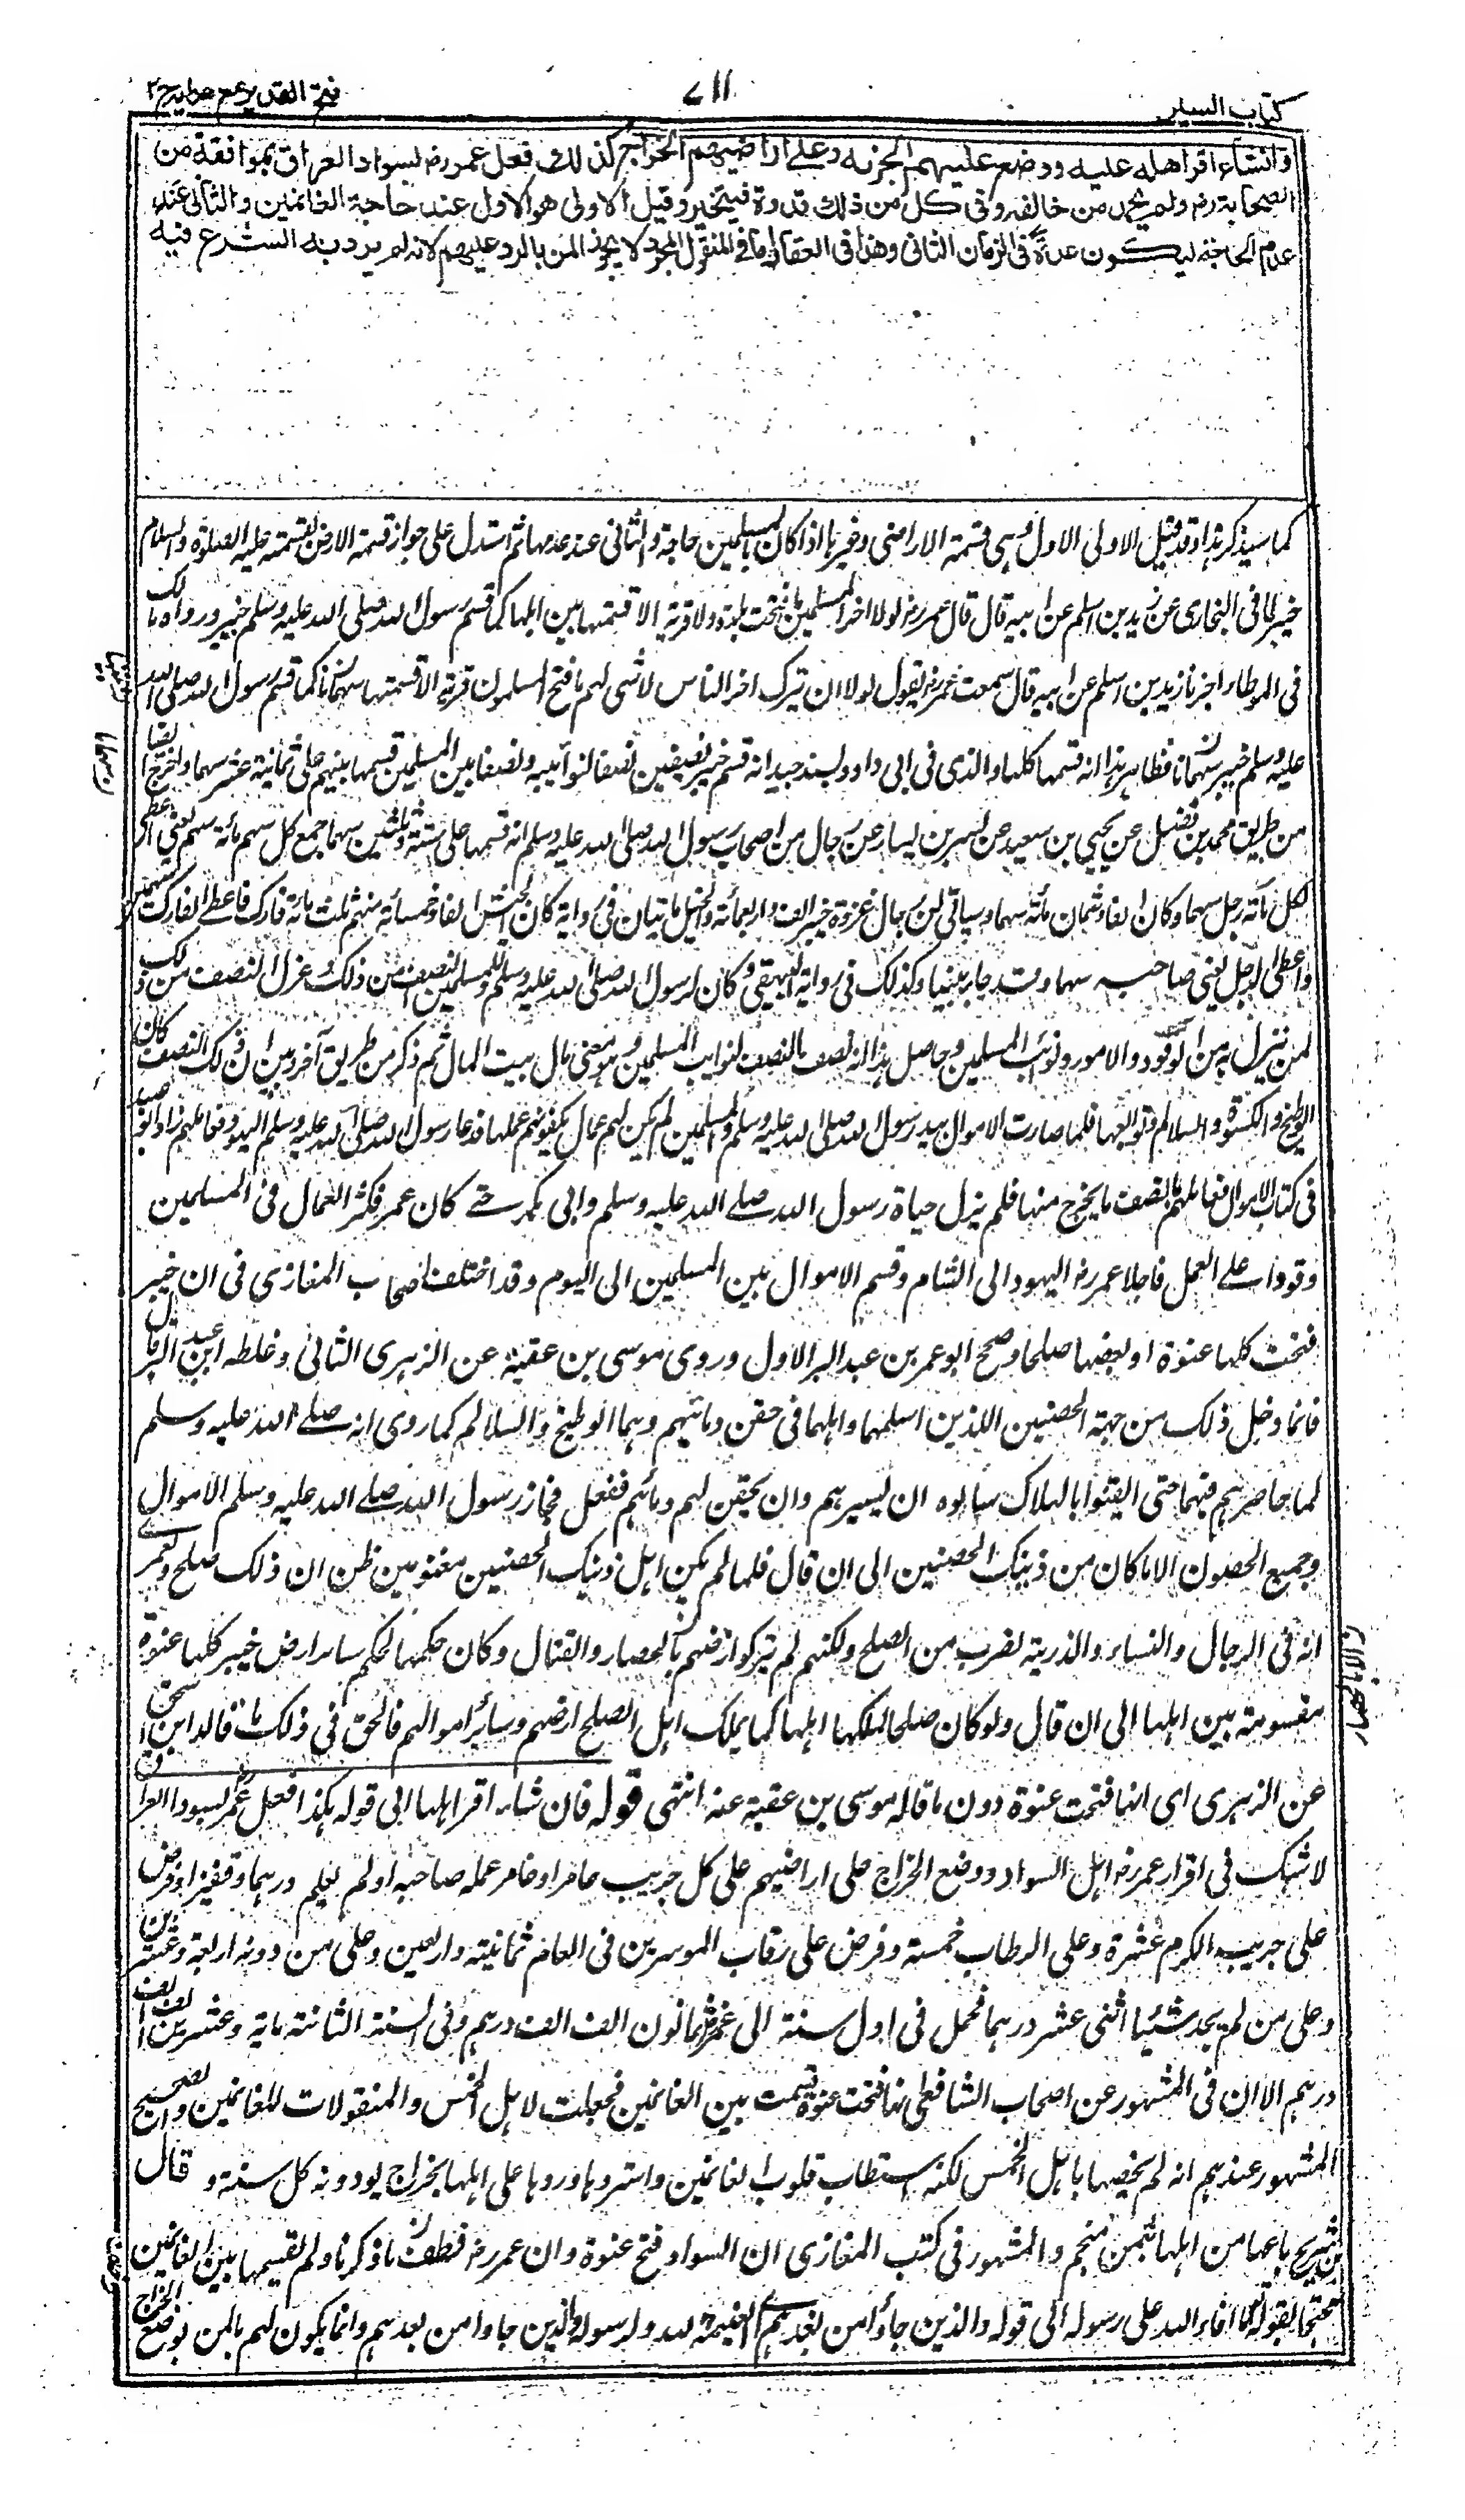 كتاب السير
٧١١
فتح القدير مع هدايه ج ٢
وان شاء اقر اهله عليه ووضع عليهم الجزية وعلى اراضيهم الخراج كذلك فعل عمر رضہ بسواد العراق بموافقة من
الصحابة رضہ ولم يحمد من خالفه وفى كل من ذلك قدوة فيتخير وقيل الاولى هو الاول عند حاجة الغانمين والثانى عند
عدم الحاجة ليكون عدة فى الزمان الثانى وهذا فى العقار اما فى المنقول المجرد لا يجوز المن بالرد عليهم لانه لم يرد به الشرع فيه
كما سيذكر هذا وقد قيل الاولى الاول وهى قسمة الاراضى وغيرها اذا كان بالمسلمين حاجة والثانى عند عدمها ثم استدل على جواز قسمة الارض بقسمته عليه الصلوة والسلام
خيبر لما فى البخارى عن زيد بن اسلم عن ابيه قال قال عمر رضہ لولا اخر المسلمين ما فتحت بلدة ولا قرية الا قسمتها بين اهلها كما قسم رسول الله صلى الله عليه وسلم خيبر ورواه مالك
فى الموطاء اخبرنا زيد بن اسلم عن ابيه قال سمعت عمر رضہ يقول لولا ان يترك اخر الناس لا شى لهم ما فتح المسلمون قرية الا قسمتها سهمانا كما قسم رسول الله صلى الله
عليه وسلم خيبر سهمانا فظاهر هذا انه قسمها كلها والذى فى ابى داود بسند جيد انه قسم خيبر نصفين نصفا لنوائبه ونصفا بين المسلمين قسمها بينهم على ثمانية عشر سهما واخرج ايضا
من طريق محمد بن فضيل عن يحيى بن سعيد عن بشير بن يسار عن رجال من اصحاب رسول الله صلى الله عليه وسلم انه قسمها على ستة وثلثين سهما جمع كل سهم مائة سهم يعنى اعطى
لكل مائة رجل سهما وكان الفا وثمان مائة سهما وسياتى ان رجال غزوة خيبر الف واربعمائة والخيل مايتان فى رواية كان الجيش الفا وخمسمائة منهم ثلث مائة فارس فاعطى الفارس سهمين
واعطى الرجل يعنى صاحبه سهما وقد جاء مبينا وكذلك فى رواية البيهقى وكان لرسول الله صلى الله عليه وسلم وللمسلمين النصف من ذلك وعزل النصف من ذلك
لمن ينزل به من الوفود والامور ونوائب المسلمين وحاصل هذا انه نصف النصف لنوايب المسلمين وهو معنى مال بيت المال ثم ذكر من طريق آخر وبين ان ذلك النصف كان
الوطيح والكتيبة والسلالم وتوابعها فلما صارت الاموال بيد رسول الله صلى الله عليه وسلم والمسلمين لم يكن لهم عمال يكفونهم عملها فدعا رسول الله صلى الله عليه وسلم اليهود فعاملهم زاد ابو عبيد
فى كتاب الاموال فعاملهم بنصف ما يخرج منها فلم يزل حياة رسول الله صلے الله عليه وسلم وابى بكر حتے كان عمر فكثر العمال فى المسلمين
وقووا على العمل فاجلا عمر رضہ اليهود الى الشام وقسم الاموال بين المسلمين الى اليوم وقد اختلف اصحاب المغازى فى ان خيبر
فتحت كلها عنوة او بعضها صلحا وصحح ابو عمر بن عبد البر الاول وروى موسى بن عقبة عن الزهرى الثانى وغلطه ابن عبد البر قال
فانما دخل ذلك من جهة الحصنين اللذين اسلمهما اهلهما فى حقن دمائهم وهما الوطيح والسلالم كما روى انه صلے الله عليه وسلم
لما حاصرهم فيهما حتى ايقنوا بالهلاك سالوه ان يسيرهم وان يحقن لهم دمائهم ففعل فحاز رسول الله صلے الله عليه وسلم الاموال
وجميع الحصون الا ما كان من ذينك الحصنين الى ان قال فلما لم يكن اهل ذينك الحصنين مغنومين ظن ان ذلك صلح ولعمرى
انه فى الرجال والنساء والذرية لضرب من الصلح ولكنهم لم يتركوا ارضهم الا بالحصار والقتال وكان حكمها كحكم سائر ارض خيبر كلها عنوة
مقسومة بين اهلها الى ان قال ولو كان صلحا لملكها اهلها كما يملك اهل الصلح ارضهم وسائر اموالهم فالحق فى ذلك ما قاله ابن اسحق
عن الزهرى اى انها فتحت عنوة دون ما قاله موسى بن عقبة عنه انتهى قوله فان شاء اقر اهلها الى قوله هكذا فعل عمر بسواد العراق
لا شك فى اقرار عمر رضہ اهل السواد ووضع الخراج على اراضيهم على كل جريب عامر او غامر عمله صاحبه او لم يعلم درهما وقفيزا وفرض
على جريب الكرم عشرة وعلى الرطاب خمسة وفرض على رقاب الموسرين فى العام ثمانية واربعين وعلى من دونه اربعة وعشرين
وعلى من لم يجد شيئا اثنى عشر درهما فحمل فى اول سنة الى عمر ثمانون الف الف درهم وفى السنة الثانية ماية وعشرين الف الف
درهم الا ان فى المشهور عن اصحاب الشافعى انها فتحت عنوة وقسمت بين الغانمين فجعلت لاهل الخمس والمنقولات للغانمين والصحيح
المشهور عندهم انه لم يخصها باهل الخمس لكنه استطاب قلوب الغانمين واستردها وردها على اهلها بخراج يودونه كل سنة وقال
ابن شريح باعها من اهلها بثمن منجم والمشهور فى كتب المغازى ان السواد فتح عنوة وان عمر رضہ وظف ما ذكرنا ولم يقسمها بين الغانمين
محتجا بقوله تعالى ما افاء الله على رسوله الى قوله والذين جاؤا من بعدهم الغنيمة لله ولرسوله والذين جاوا من بعدهم وانما يكون لهم بالمن بوضع الخراج